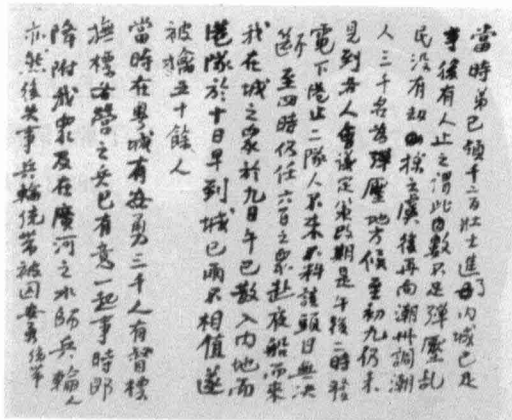 當時弟已領千二百壯士進了內城已足
事後有人止之謂此內數只足彈壓亂
民沒有劫掠之虞後再向潮州調潮
人三千名為彈壓地方候至初九仍未
見到各人會議定策改期是午後二時發
電下港止二隊人不來不料該頭目無決
斷至四時仍任六百之眾赴夜船而來
我在城之眾於九日午已散入內地而
港隊於十日早到城已兩不相值遂
被擒五十餘人
當時在粵城有安勇三千人有督標
撫標各營之兵已有意一起事時即
降附我眾及在廣河之水師兵輪人
亦然後失事兵輪統帶被囚安勇統帶